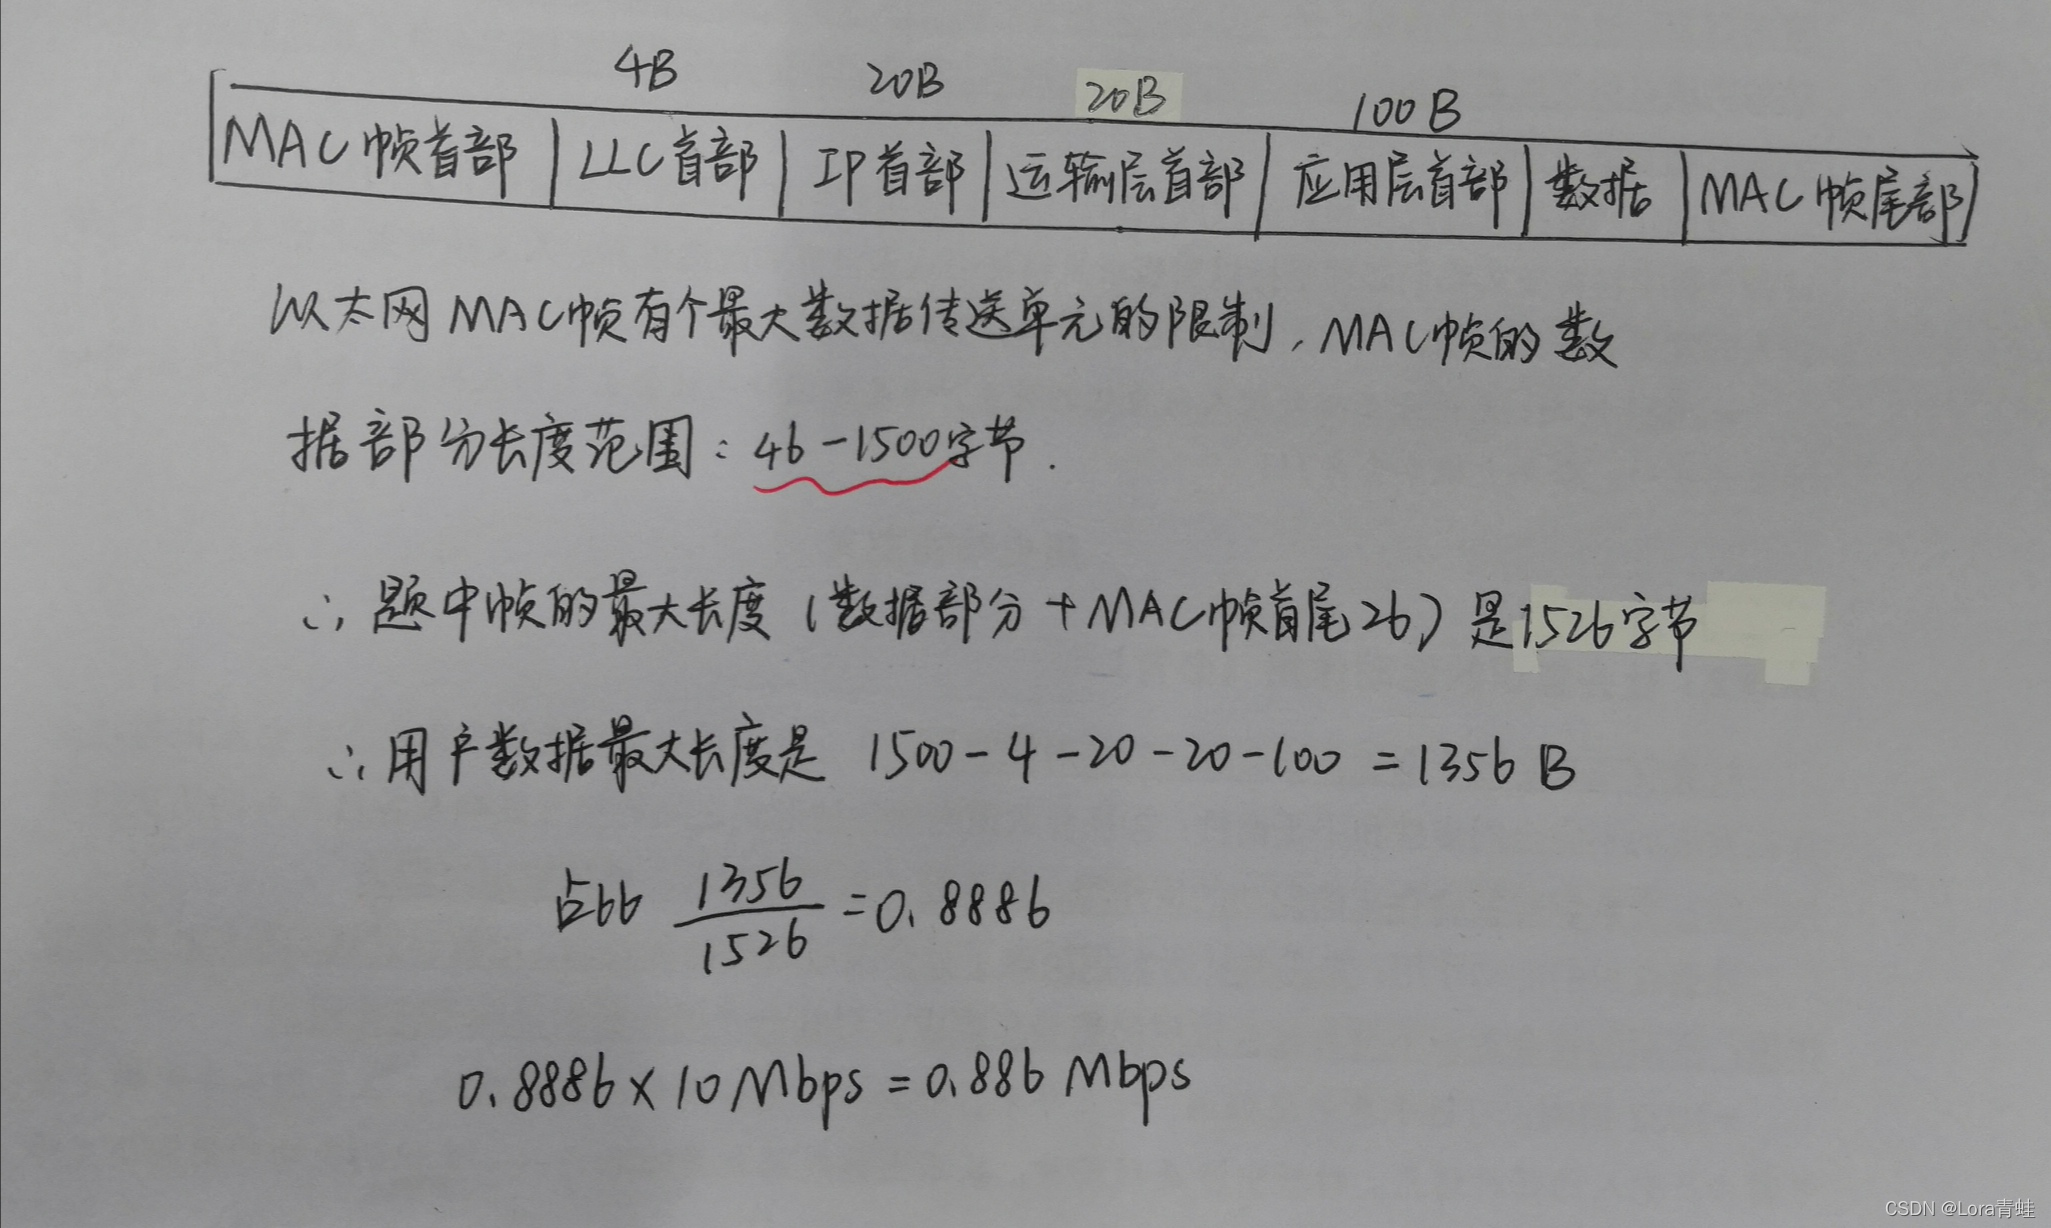 4B 20B 20B 100B
MAC帧首部 LLC首部 IP首部 运输层首部 应用层首部 数据 MAC帧尾部
以太网MAC帧有个最大数据传送单元的限制,MAC帧的数
据部分长度范围:46-1500字节.
∴题中帧的最大长度(数据部分+MAC帧首尾26)是1526字节
∴用户数据最大长度是 1500-4-20-20-100=1356B
占比 1356/1526=0.8886
0.8886×10Mbps=0.886Mbps
CSDN @Lora青蛙